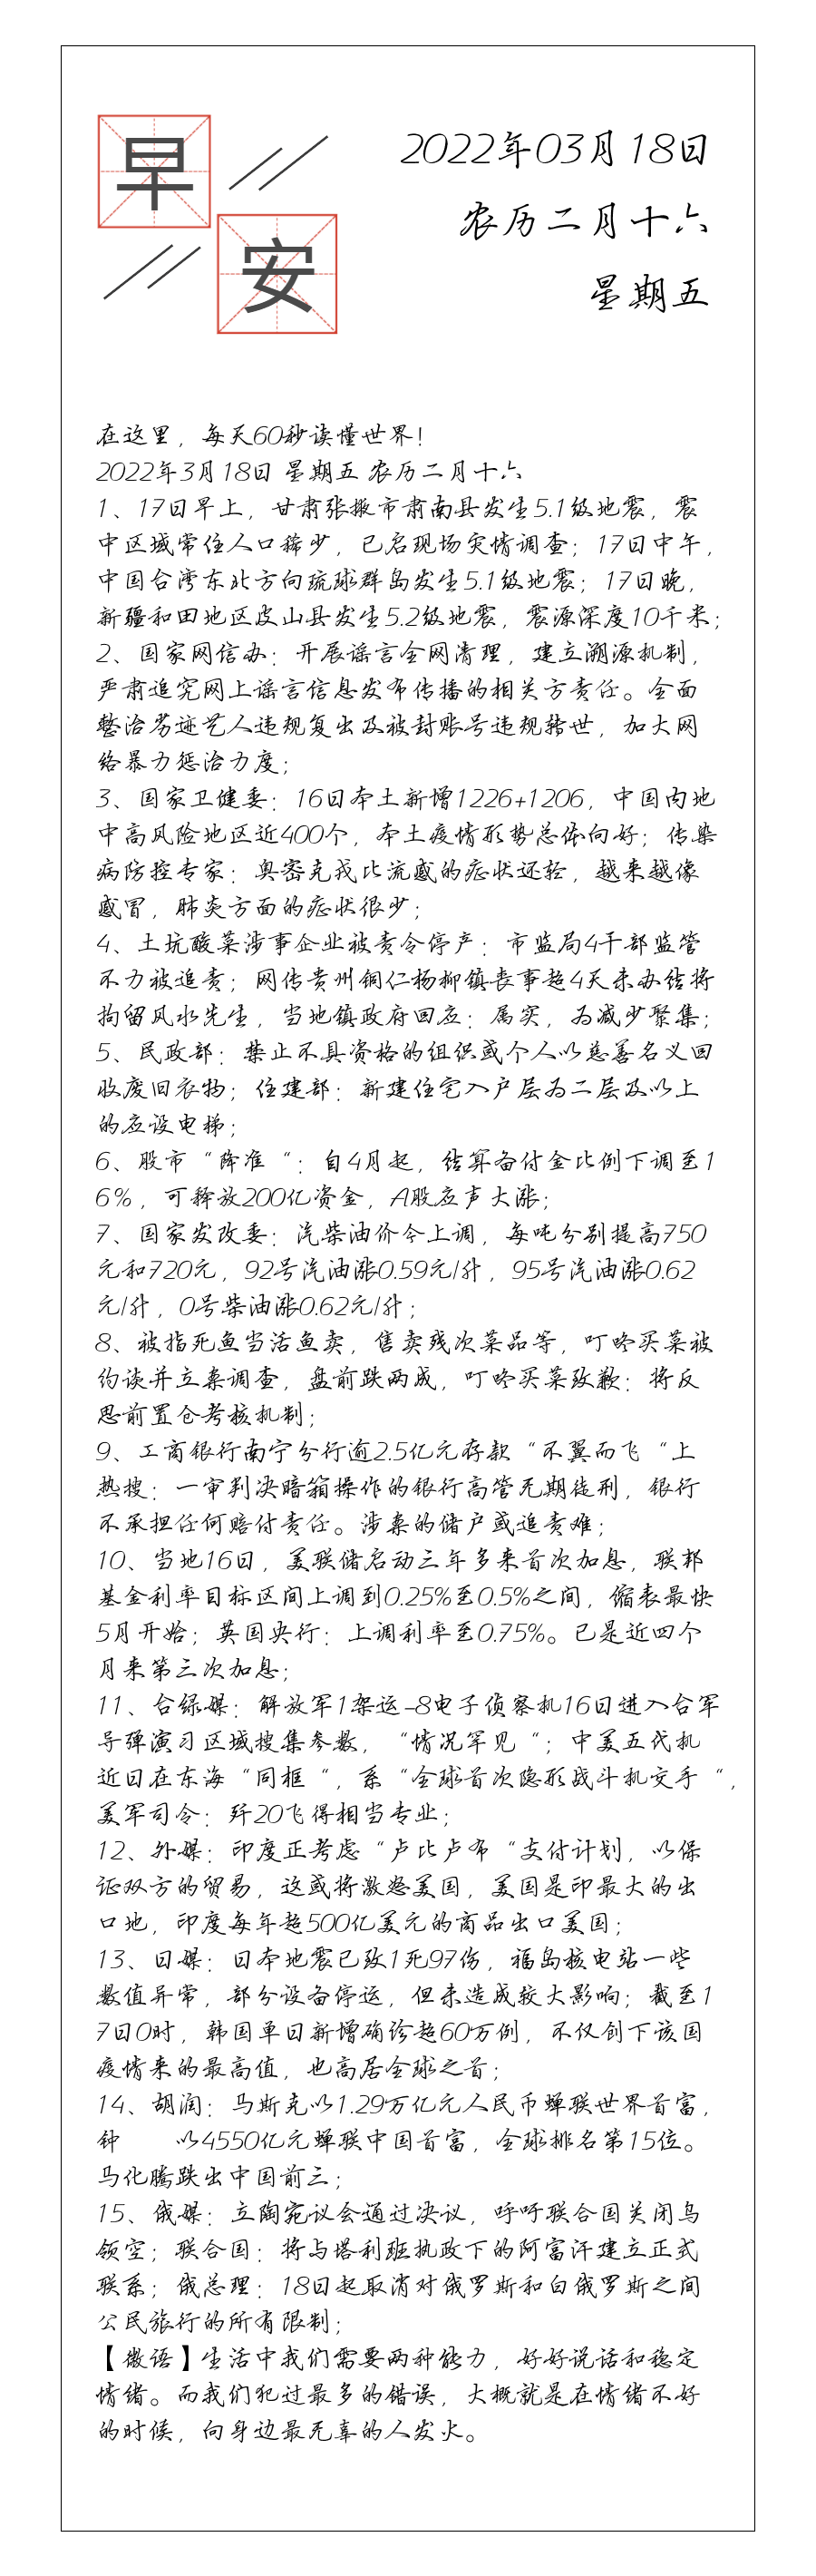 早安
2022年03月18日
农历二月十六
星期五
在这里，每天60秒读懂世界！
2022年3月18日 星期五 农历二月十六
1、17日早上，甘肃张掖市肃南县发生5.1级地震，震
中区域常住人口稀少，已启现场灾情调查；17日中午，
中国台湾东北方向琉球群岛发生5.1级地震；17日晚，
新疆和田地区皮山县发生5.2级地震，震源深度10千米；
2、国家网信办：开展谣言全网清理，建立溯源机制，
严肃追究网上谣言信息发布传播的相关方责任。全面
整治劣迹艺人违规复出及被封账号违规转世，加大网
络暴力惩治力度；
3、国家卫健委：16日本土新增1226+1206，中国内地
中高风险地区近400个，本土疫情形势总体向好；传染
病防控专家：奥密克戎比流感的症状还轻，越来越像
感冒，肺炎方面的症状很少；
4、土坑酸菜涉事企业被责令停产：市监局4干部监管
不力被追责；网传贵州铜仁杨柳镇丧事超4天未办结将
拘留风水先生，当地镇政府回应：属实，为减少聚集；
5、民政部：禁止不具资格的组织或个人以慈善名义回
收废旧衣物；住建部：新建住宅入户层为二层及以上
的应设电梯；
6、股市“降准“：自4月起，结算备付金比例下调至1
6%，可释放200亿资金，A股应声大涨；
7、国家发改委：汽柴油价今上调，每吨分别提高750
元和720元，92号汽油涨0.59元/升，95号汽油涨0.62
元/升，0号柴油涨0.62元/升；
8、被指死鱼当活鱼卖，售卖残次菜品等，叮咚买菜被
约谈并立案调查，盘前跌两成，叮咚买菜致歉：将反
思前置仓考核机制；
9、工商银行南宁分行逾2.5亿元存款“不翼而飞“上
热搜：一审判决暗箱操作的银行高管无期徒刑，银行
不承担任何赔付责任。涉案的储户或追责难；
10、当地16日，美联储启动三年多来首次加息，联邦
基金利率目标区间上调到0.25%至0.5%之间，缩表最快
5月开始；英国央行：上调利率至0.75%。已是近四个
月来第三次加息；
11、台绿媒：解放军1架运-8电子侦察机16日进入台军
导弹演习区域搜集参数，“情况罕见“；中美五代机
近日在东海“同框“，系“全球首次隐形战斗机交手“，
美军司令：歼20飞得相当专业；
12、外媒：印度正考虑“卢比卢布“支付计划，以保
证双方的贸易，这或将激怒美国，美国是印最大的出
口地，印度每年超500亿美元的商品出口美国；
13、日媒：日本地震已致1死97伤，福岛核电站一些
数值异常，部分设备停运，但未造成较大影响；截至1
7日0时，韩国单日新增确诊超60万例，不仅创下该国
疫情来的最高值，也高居全球之首；
14、胡润：马斯克以1.29万亿元人民币蝉联世界首富，
钟 以4550亿元蝉联中国首富，全球排名第15位。
马化腾跌出中国前三；
15、俄媒：立陶宛议会通过决议，呼吁联合国关闭乌
领空；联合国：将与塔利班执政下的阿富汗建立正式
联系；俄总理：18日起取消对俄罗斯和白俄罗斯之间
公民旅行的所有限制；
【微语】生活中我们需要两种能力，好好说话和稳定
情绪。而我们犯过最多的错误，大概就是在情绪不好
的时候，向身边最无辜的人发火。